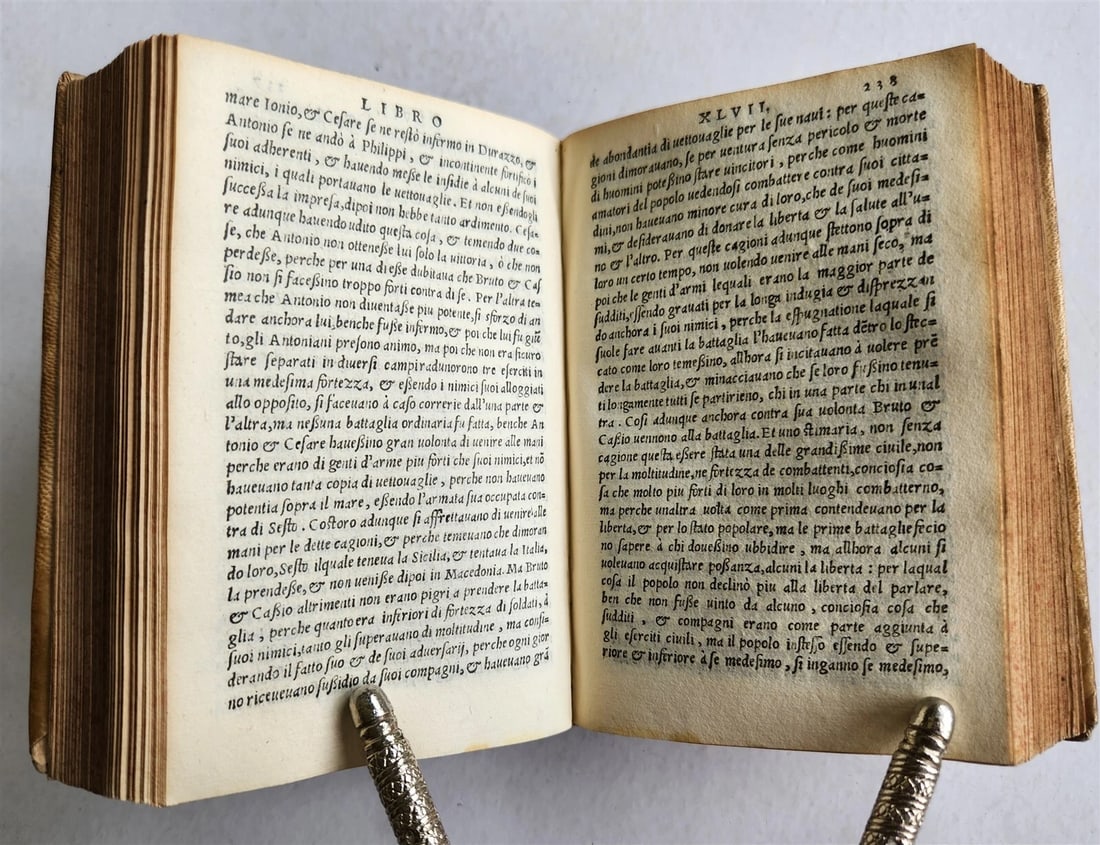 LIBRO
mare Ionio, & Cesare se ne restò infermo in Durazzo, &
Antonio se ne andò à Philippi, & incontinente fortificò i
suoi adherenti, & hauendo messe le insidie à alcuni de suoi
nimici, i quali portauano le uettouaglie. Et non essendogli
successa la impresa, dipoi non hebbe tanto ardimento. Cesa=
re adunque hauendo udito questa cosa, & temendo due co=
se, che Antonio non ottenesse lui solo la uittoria, ò che non
perdesse, perche per una diesse dubitaua che Bruto & Cas
sio non si facessino troppo forti contra di se. Per l'altra te=
mea che Antonio non diuentasse piu potente, si sforzo di an
dare anchora lui, benche fusse infermo, & poi che lui fu giũ
to, gli Antoniani presono animo, ma poi che non era sicuro
stare separati in diuersi campi radunorono tre eserciti in
una medesima fortezza, & essendo i nimici suoi alloggiati
allo opposito, si faceuano à caso correrie dall'una parte &
l'altra, ma nessuna battaglia ordinaria fu fatta, benche An
tonio & Cesare hauessino gran uolonta di uenire alle mani
perche erano di genti d'arme piu forti che suoi nimici, et nõ
haueuano tanta copia di uettouaglie, perche non haueuano
potentia sopra il mare, essendo l'armata sua occupata con=
tra di Sesto. Costoro adunque si affrettauano di uenire alle
mani per le dette cagioni, & perche temeuano che dimoran
do loro, Sesto ilquale teneua la Sicilia, & tentaua la Italia,
la prendesse, & non uenisse dipoi in Macedonia. Ma Bruto
& Cassio altrimenti non erano pigri a prendere la batta=
glia, perche quanto era inferiori di fortezza di soldati, à
suoi nimici, tanto gli superauano di moltitudine, ma consi=
derando il fatto suo & de suoi aduersarij, perche ogni gior
no riceueuano sussidio da suoi compagni, & haueuano grã
XLVII. 238
de abondantia di uettouaglie per le sue naui: per queste ca=
gioni dimorauano, se per uentura senza pericolo & morte
di huomini potessino stare uincitori, perche come huomini
amatori del popolo uedendosi combattere contra suoi citta=
dini, non haueuano minore cura di loro, che de suoi medesi=
mi, & desiderauano di donare la liberta & la salute all'u=
no & l'altro. Per queste cagioni adunque stettono sopra di
loro un certo tempo, non uolendo uenire alle mani seco, ma
poi che le genti d'armi lequali erano la maggior parte de
sudditi, essendo grauati per la longa indugia & disprezzan
do anchora i suoi nimici, perche la espugnatione laquale si
suole fare auanti la battaglia l'haueuano fatta dẽtro lo stec=
cato come loro temessino, allhora si incitauano à uolere prẽ
dere la battaglia, & minacciauano che se loro fussino tenu=
ti longamente tutti se partirieno, chi in una parte chi in unal
tra. Cosi adunque anchora contra sua uolonta Bruto &
Cassio uennono alla battaglia. Et uno stimaria, non senza
cagione questa essere stata una delle grandissime ciuile, non
per la moltitudine, ne fortezza de combattenti, conciosia co=
sa che molto piu forti di loro in molti luoghi combatterno,
ma perche unaltra uolta come prima contendeuano per la
liberta, & per lo stato popolare, ma le prime battaglie fecio
no sapere à chi douessino ubbidire, ma allhora alcuni si
uoleuano acquistare possanza, alcuni la liberta: per laqual
cosa il popolo non declinò piu alla liberta del parlare,
ben che non fusse uinto da alcuno, conciosia cosa che
sudditi, & compagni erano come parte aggiunta à
gli eserciti ciuili, ma il popolo instesso essendo & supe=
riore & inferiore à se medesimo, si inganno se medesimo,